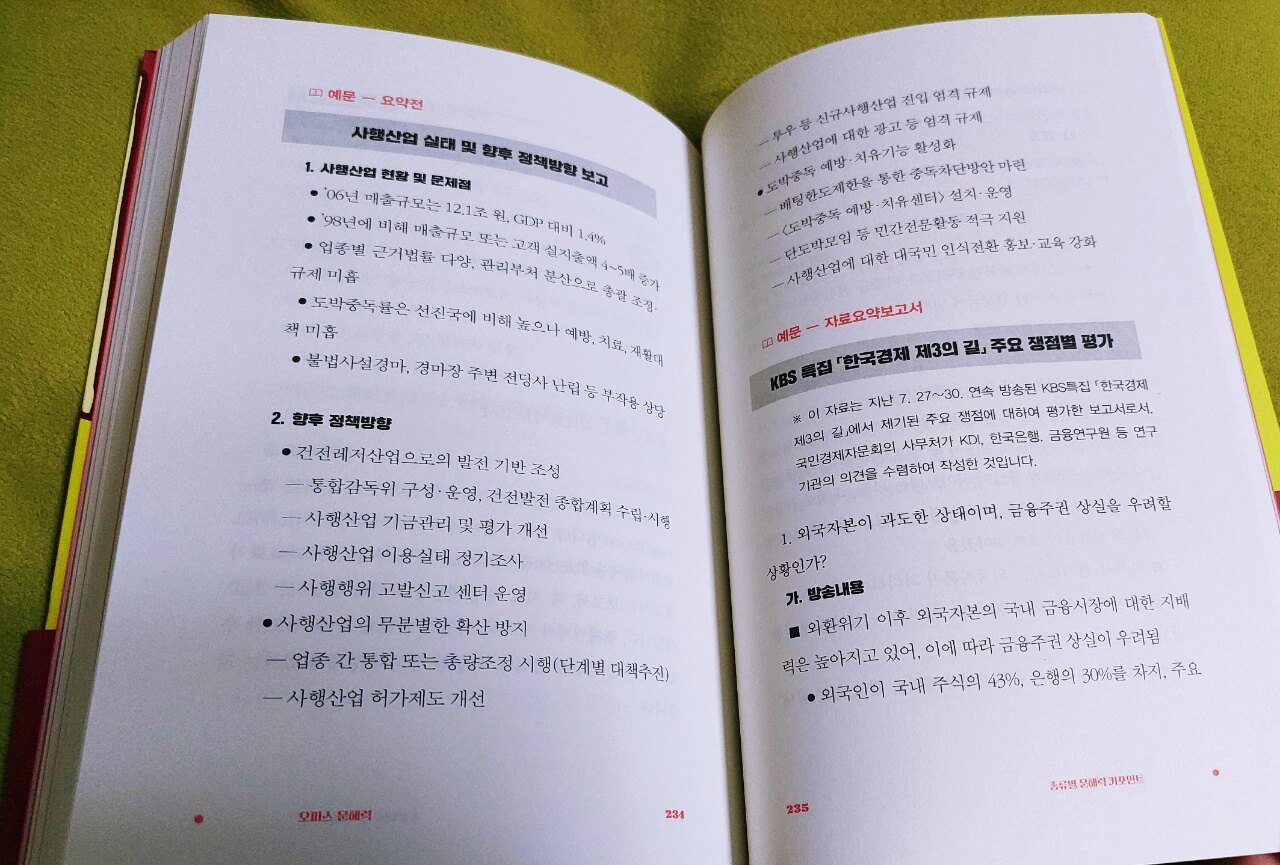 예문 — 요약전
사행산업 실태 및 향후 정책방향 보고
1. 사행산업 현황 및 문제점
● '06년 매출규모는 12.1조 원, GDP 대비 1.4%
● '98년에 비해 매출규모 또는 고객 실지출액 4~5배 증가
● 업종별 근거법률 다양, 관리부처 분산으로 총괄 조정·
규제 미흡
● 도박중독률은 선진국에 비해 높으나 예방, 치료, 재활대
책 미흡
● 불법사설경마, 경마장 주변 전당사 난립 등 부작용 상당
2. 향후 정책방향
● 건전레저산업으로의 발전 기반 조성
— 통합감독위 구성·운영, 건전발전 종합계획 수립·시행
— 사행산업 기금관리 및 평가 개선
— 사행산업 이용실태 정기조사
— 사행행위 고발신고 센터 운영
● 사행산업의 무분별한 확산 방지
— 업종 간 통합 또는 총량조정 시행(단계별 대책추진)
— 사행산업 허가제도 개선
오피스 문해력
234
— 투우 등 신규사행산업 진입 엄격 규제
— 사행산업에 대한 광고 등 엄격 규제
● 도박중독 예방·치유기능 활성화
— 배팅한도제한을 통한 중독차단방안 마련
— 〈도박중독 예방·치유센터〉 설치·운영
— 단도박모임 등 민간전문활동 적극 지원
— 사행산업에 대한 대국민 인식전환 홍보·교육 강화
예문 — 자료요약보고서
KBS 특집 「한국경제 제3의 길」 주요 쟁점별 평가
※ 이 자료는 지난 7. 27~30. 연속 방송된 KBS특집 「한국경제
제3의 길」에서 제기된 주요 쟁점에 대하여 평가한 보고서로서,
국민경제자문회의 사무처가 KDI, 한국은행, 금융연구원 등 연구
기관의 의견을 수렴하여 작성한 것입니다.
1. 외국자본이 과도한 상태이며, 금융주권 상실을 우려할
상황인가?
가. 방송내용
■ 외환위기 이후 외국자본의 국내 금융시장에 대한 지배
력은 높아지고 있어, 이에 따라 금융주권 상실이 우려됨
● 외국인이 국내 주식의 43%, 은행의 30%를 차지, 주요
235
종류별 문해력 키포인트